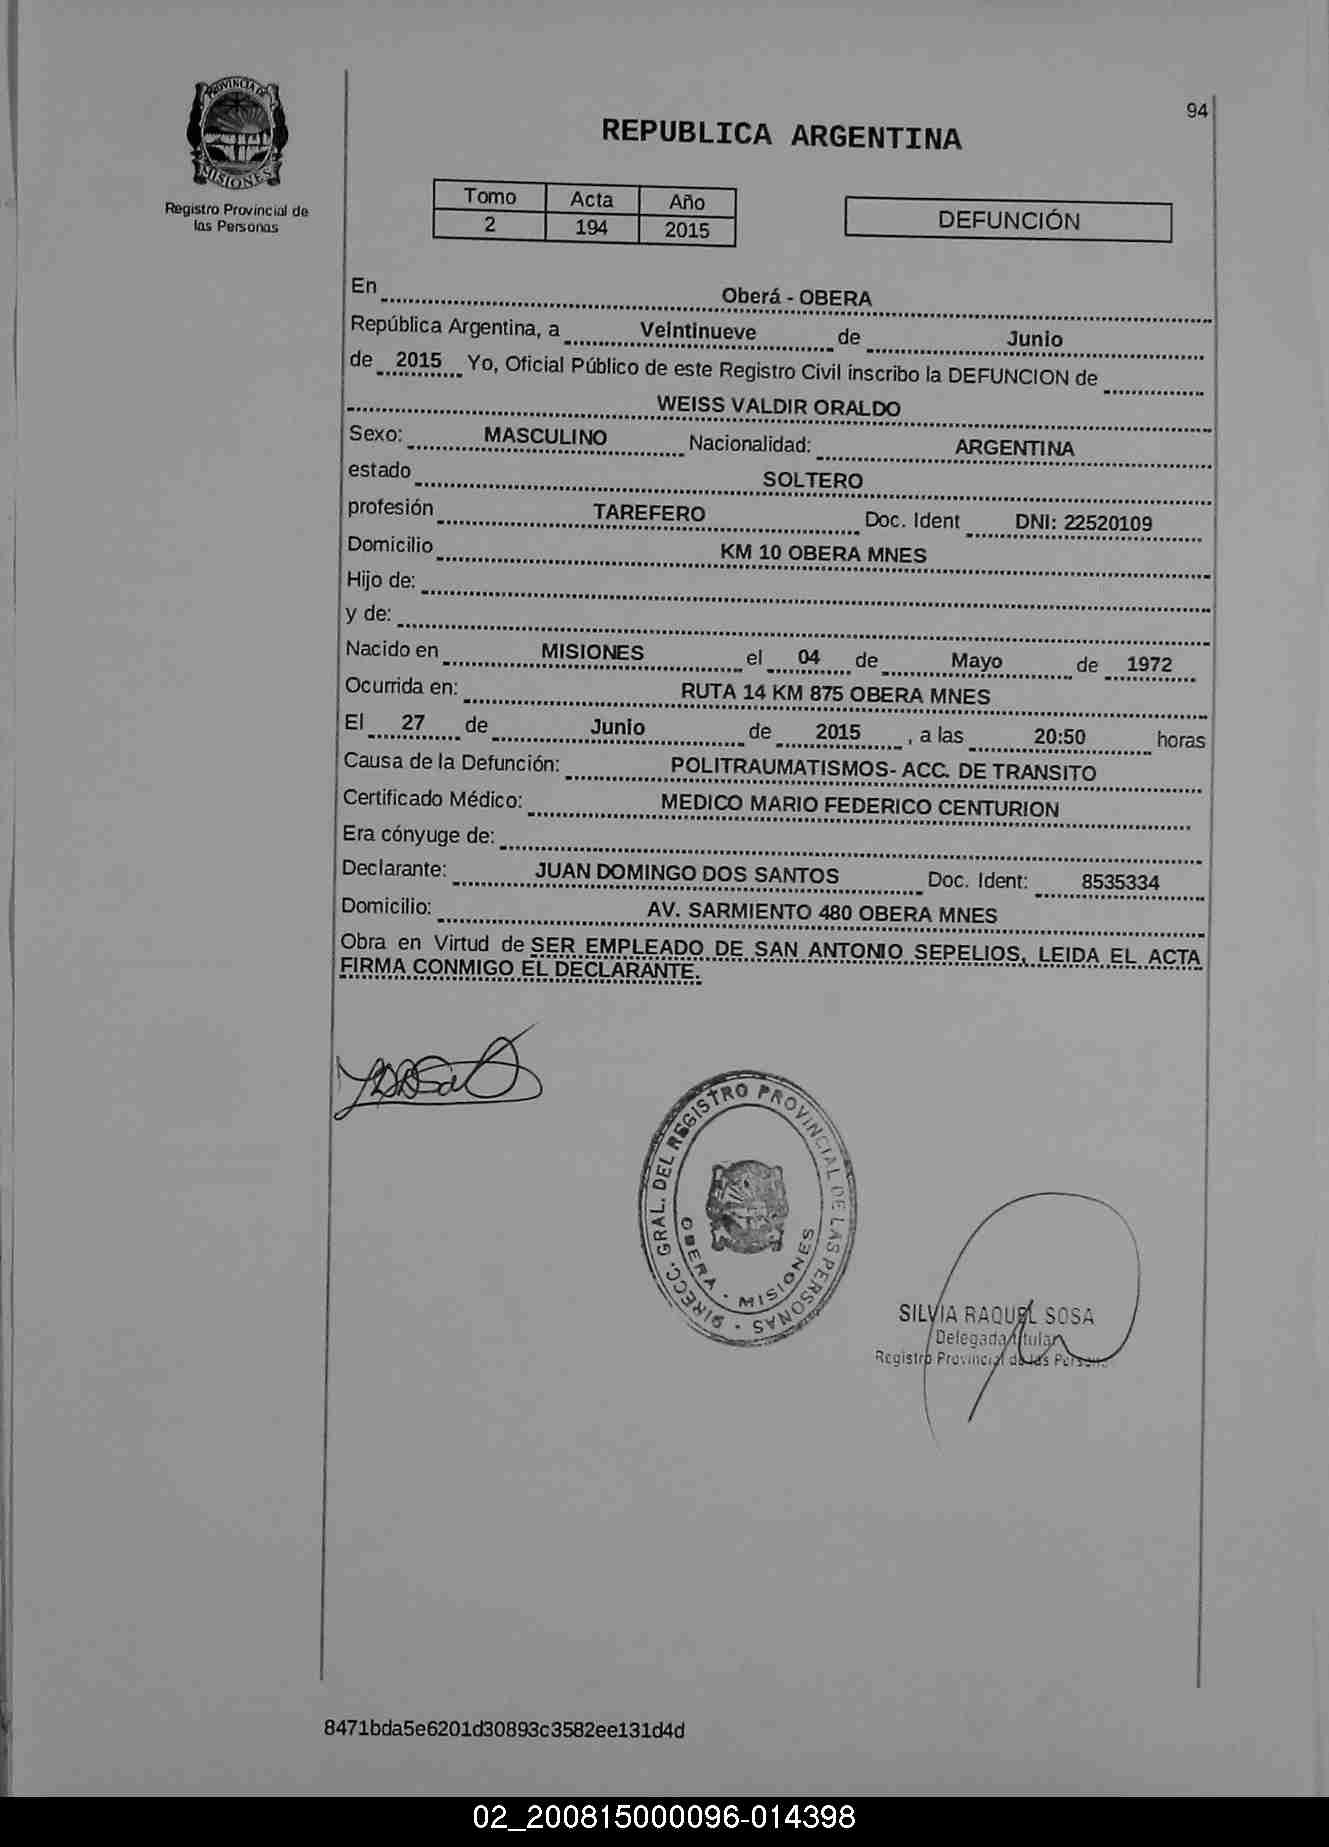 94
PROVINCIA DE
MISIONES
Registro Provincial de
las Personas
REPUBLICA ARGENTINA
Tomo Acta Año
2 194 2015
DEFUNCIÓN
En Oberá - OBERA
República Argentina, a Veintinueve de Junio
de 2015 Yo, Oficial Público de este Registro Civil inscribo la DEFUNCION de
WEISS VALDIR ORALDO
Sexo: MASCULINO Nacionalidad: ARGENTINA
estado SOLTERO
profesión TAREFERO Doc. Ident DNI: 22520109
Domicilio KM 10 OBERA MNES
Hijo de:
y de:
Nacido en MISIONES el 04 de Mayo de 1972
Ocurrida en: RUTA 14 KM 875 OBERA MNES
El 27 de Junio de 2015 , a las 20:50 horas
Causa de la Defunción: POLITRAUMATISMOS- ACC. DE TRANSITO
Certificado Médico: MEDICO MARIO FEDERICO CENTURION
Era cónyuge de:
Declarante: JUAN DOMINGO DOS SANTOS Doc. Ident: 8535334
Domicilio: AV. SARMIENTO 480 OBERA MNES
Obra en Virtud de SER EMPLEADO DE SAN ANTONIO SEPELIOS, LEIDA EL ACTA
FIRMA CONMIGO EL DECLARANTE.
DIRECC. GRAL. DEL REGISTRO PROVINCIAL DE LAS PERSONAS
OBERA - MISIONES
SILVIA RAQUEL SOSA
Delegada Titular
Registro Provincial de las Personas
8471bda5e6201d30893c3582ee131d4d
02_200815000096-014398